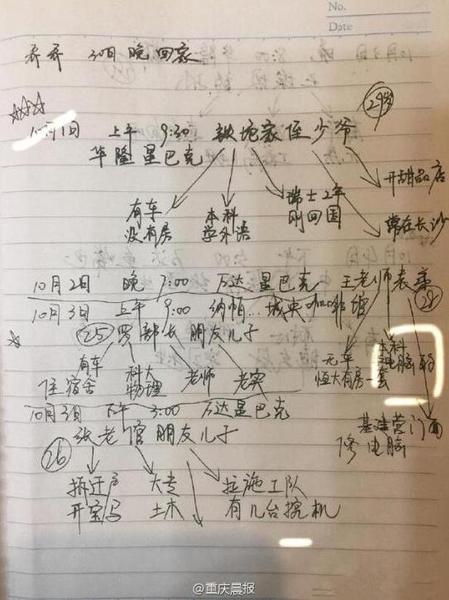 No.
Date
乔乔 30日 晚 回家
10月1日 上午 9:30 铁坨家侄少爷
29岁
华隆星巴克
有车 没有房
本科 学外语
瑞士2年 刚回国
开甜品店
常在长沙
10月2日 晚 7:00 万达星巴克 王老师表亲
28
10月3日 上午 9:00 纳帕...城央 coffee
25 罗部长 朋友儿子
有车 住宿舍
科大 物理
老师
老实
无车 恒大有房一套
本科 电脑
基建营门面 修电脑
10月3日 下午 3:00 万达星巴克
张老倌朋友儿子
26
拆迁户 开宝马
大专 土木
拉施工队 有几台挖机
@重庆晨报